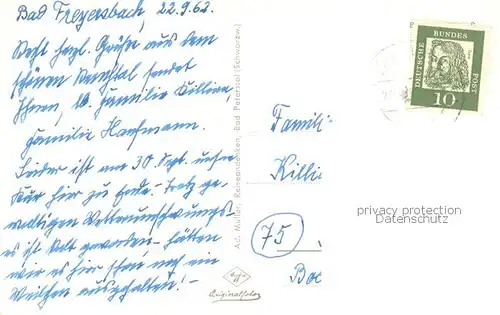 Bad Freyersbach, 22.9.62.
Recht herzl. Grüße aus dem
schönen Renchtal sendet
Ihnen, lb. Familie Killian
Familie Haufmann.
Leider ist am 30. Sept. unsre
Kur hier zu Ende. Trotz ge-
waltigen Wetterumschwungs -
es ist kalt geworden - hätten
wir es hier schon noch ein
Weilchen ausgehalten! -
Ad. Müller, Bad Peterstal (Schwarzw.)
Originalfoto
DEUTSCHE BUNDES POST
10
Famili
Killi
75
privacy protection
Datenschutz